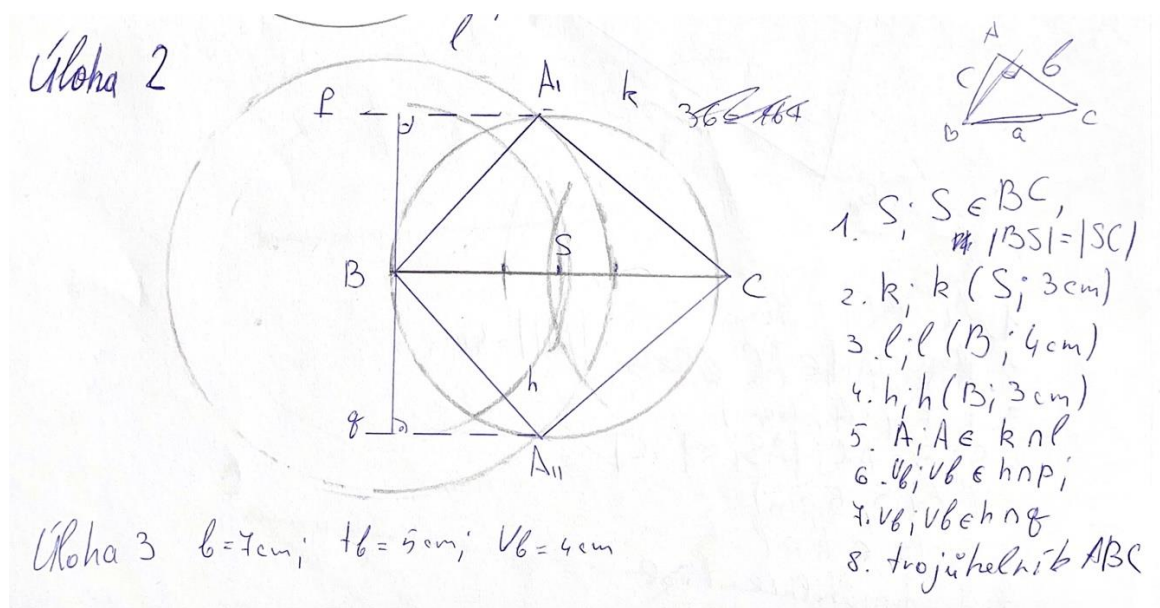 Úloha 2
l
A
c
b
B
a
C
p
A₁
k
B
S
C
h
q
A₁₁
1. S; S ∈ BC,
|BS|=|SC|
2. k; k (S; 3cm)
3. l; l (B; 4cm)
4. h; h (B; 3cm)
5. A; A ∈ k∩l
6. Vb; Vb ∈ h∩p;
7. Vb; Vb ∈ h∩q
8. trojúhelník ABC
Úloha 3 b=7cm; tb=5cm; Vb=4cm